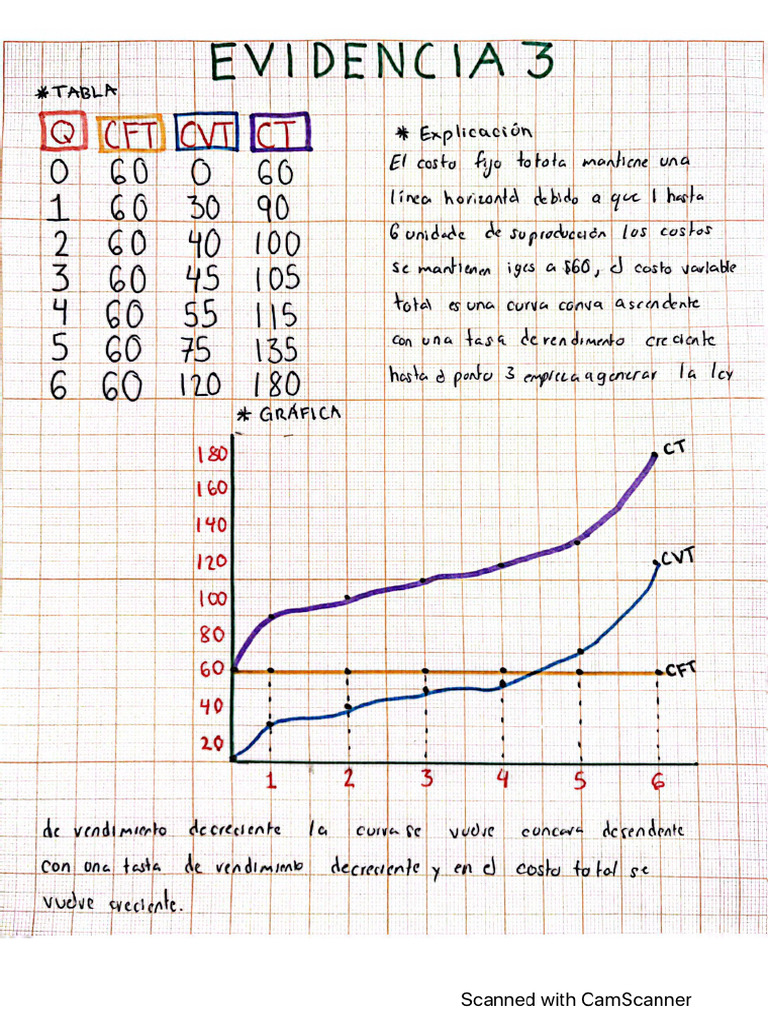 EVIDENCIA 3
* TABLA
Q CFT CVT CT
0 60 0 60
1 60 30 90
2 60 40 100
3 60 45 105
4 60 55 115
5 60 75 135
6 60 120 180
* Explicación
El costo fijo totota mantiene una
línea horizontal debido a que 1 hasta
6 unidade de su producción los costos
se mantienen iges a $60, el costo variable
total es una curva conva ascendente
con una tasa de rendimento creciente
hasta el ponto 3 empieca a generar la ley
* GRÁFICA
180
160
140
120
100
80
60
40
20
1 2 3 4 5 6
CT
CVT
CFT
de vendimiento decreciente la curva se vuelve concava desendente
con ona tasta de vendimiento decreciente y en el costo total se
vuelve creciente.
Scanned with CamScanner